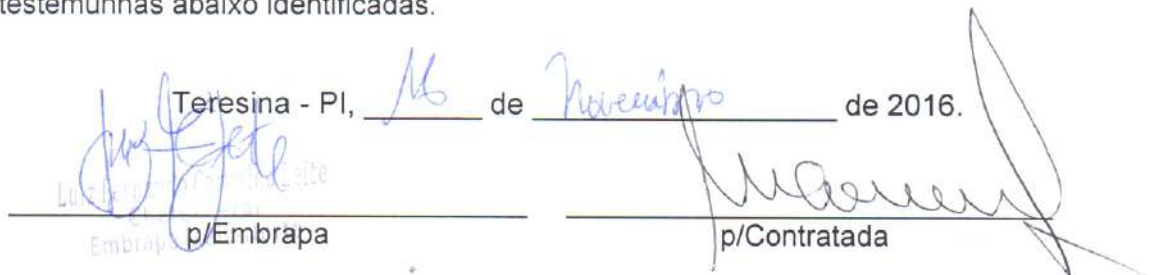 testemunhas abaixo identificadas.
Teresina - PI, 16 de Novembro de 2016.
Luiz Leite
Embrapa
p/Embrapa p/Contratada